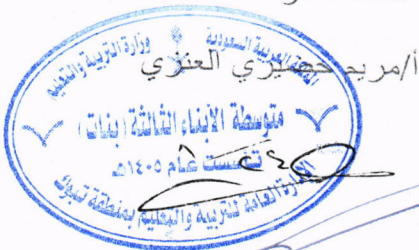 أ/مريم حضيري العنزي
المملكة العربية السعودية
وزارة التربية والتعليم
متوسطة الأبناء الثالثة (بنات)
تأسست عام ١٤٠٥هـ
الإدارة العامة للتربية والتعليم بمنطقة تبوك